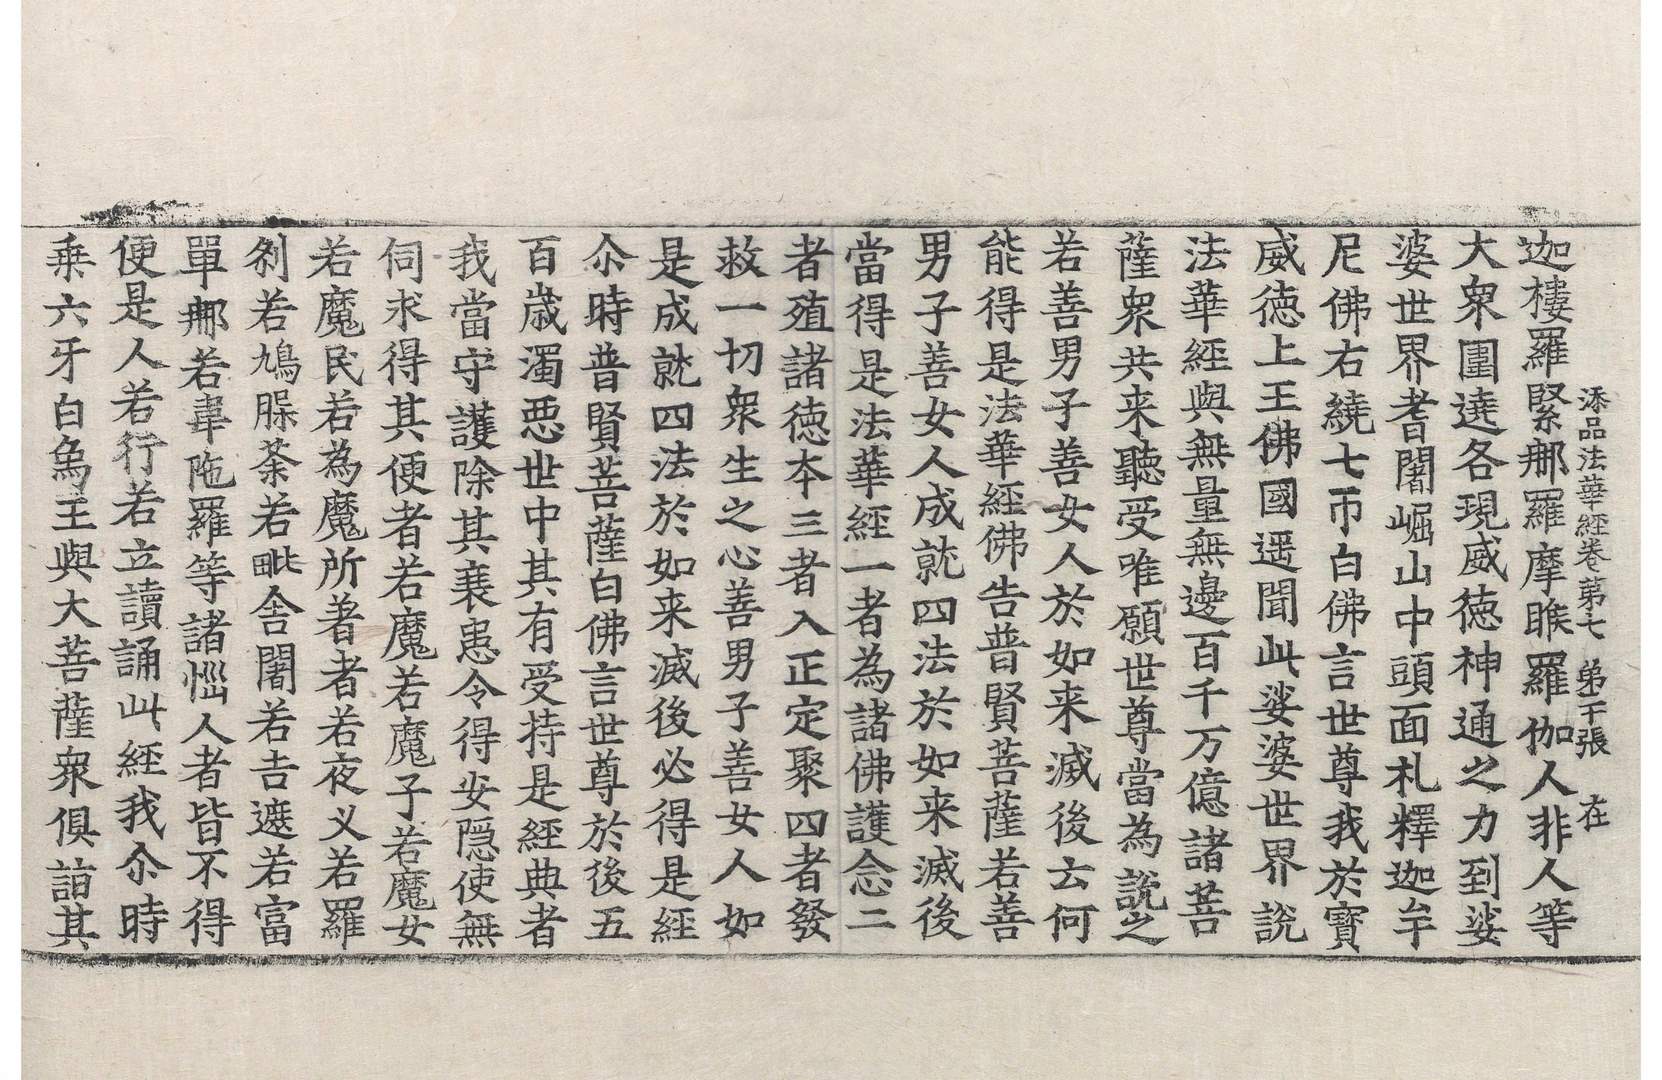 添品法華經卷第七　第干張　在
迦樓羅緊那羅摩睺羅伽人非人等
大衆圍遶各現威徳神通之力到娑
婆世界耆闍崛山中頭面礼釋迦牟
尼佛右繞七帀白佛言世尊我於寳
威徳上王佛國遥聞此娑婆世界說
法華經與無量無邊百千万億諸菩
薩衆共来聽受唯願世尊當為說之
若善男子善女人於如来滅後云何
能得是法華經佛告普賢菩薩若善
男子善女人成就四法於如来滅後
當得是法華經一者為諸佛護念二
者殖諸徳夲三者入正定聚四者發
救一切衆生之心善男子善女人如
是成就四法於如来滅後必得是經
尒時普賢菩薩白佛言世尊於後五
百歳濁惡世中其有受持是經典者
我當守護除其衰患令得安隠使無
伺求得其便者若魔若魔子若魔女
若魔民若為魔所著者若夜叉若羅
刹若鳩睺荼若毗舎闍若吉遮若富
單那若韋陁羅等諸惱人者皆不得
便是人若行若立讀誦此經我尒時
乗六牙白象王與大菩薩衆俱詣其